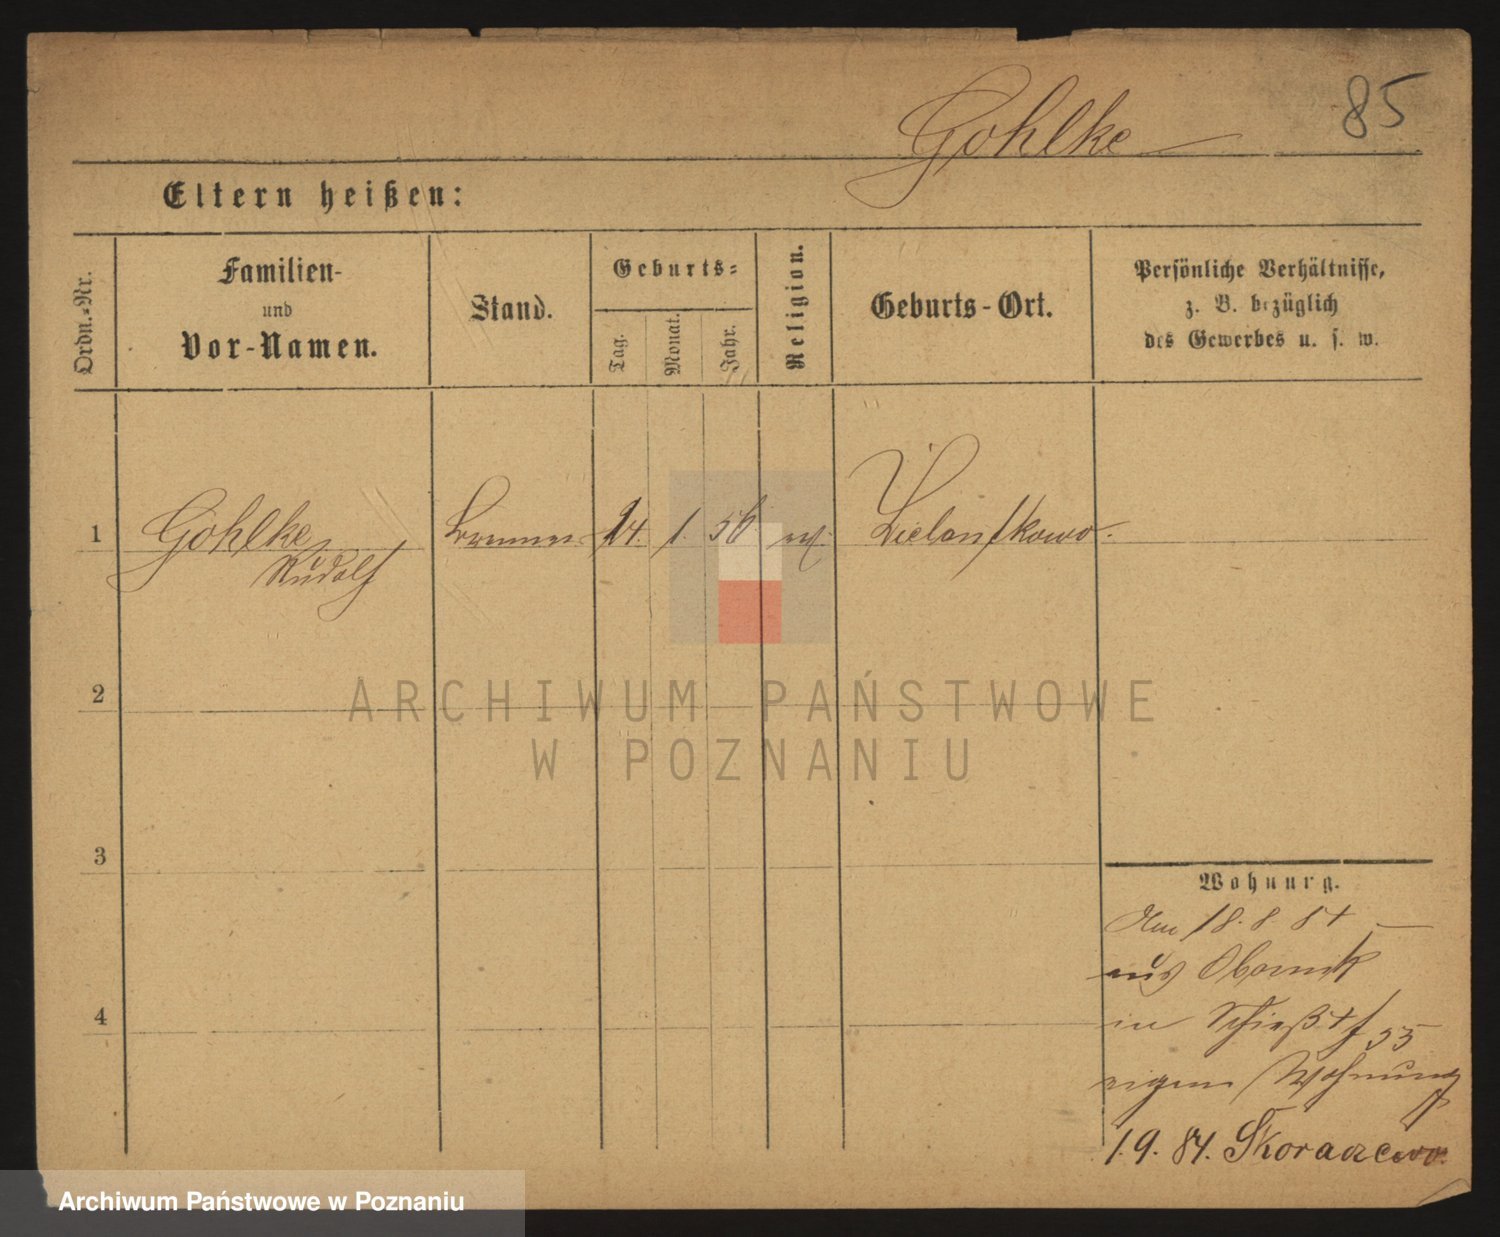 Gohlke
85
Eltern heißen:
Ordn.-Nr.
Familien-
und
Vor-Namen.
Stand.
Geburts-
Tag.
Monat.
Jahr.
Religion.
Geburts-Ort.
Persönliche Verhältnisse,
z. B. bezüglich
des Gewerbes u. s. w.
1
Gohlke
Rudolf
Brenner
24. 1. 56 ev. Zielonskowo.
2
ARCHIWUM PAŃSTWOWE
W POZNANIU
3
Wohnung.
Am 18. 8. 84
aus Obornik
in Schießstr 55
eigene Wohnung
4
1. 9. 84. Skoraczewo.
Archiwum Państwowe w Poznaniu